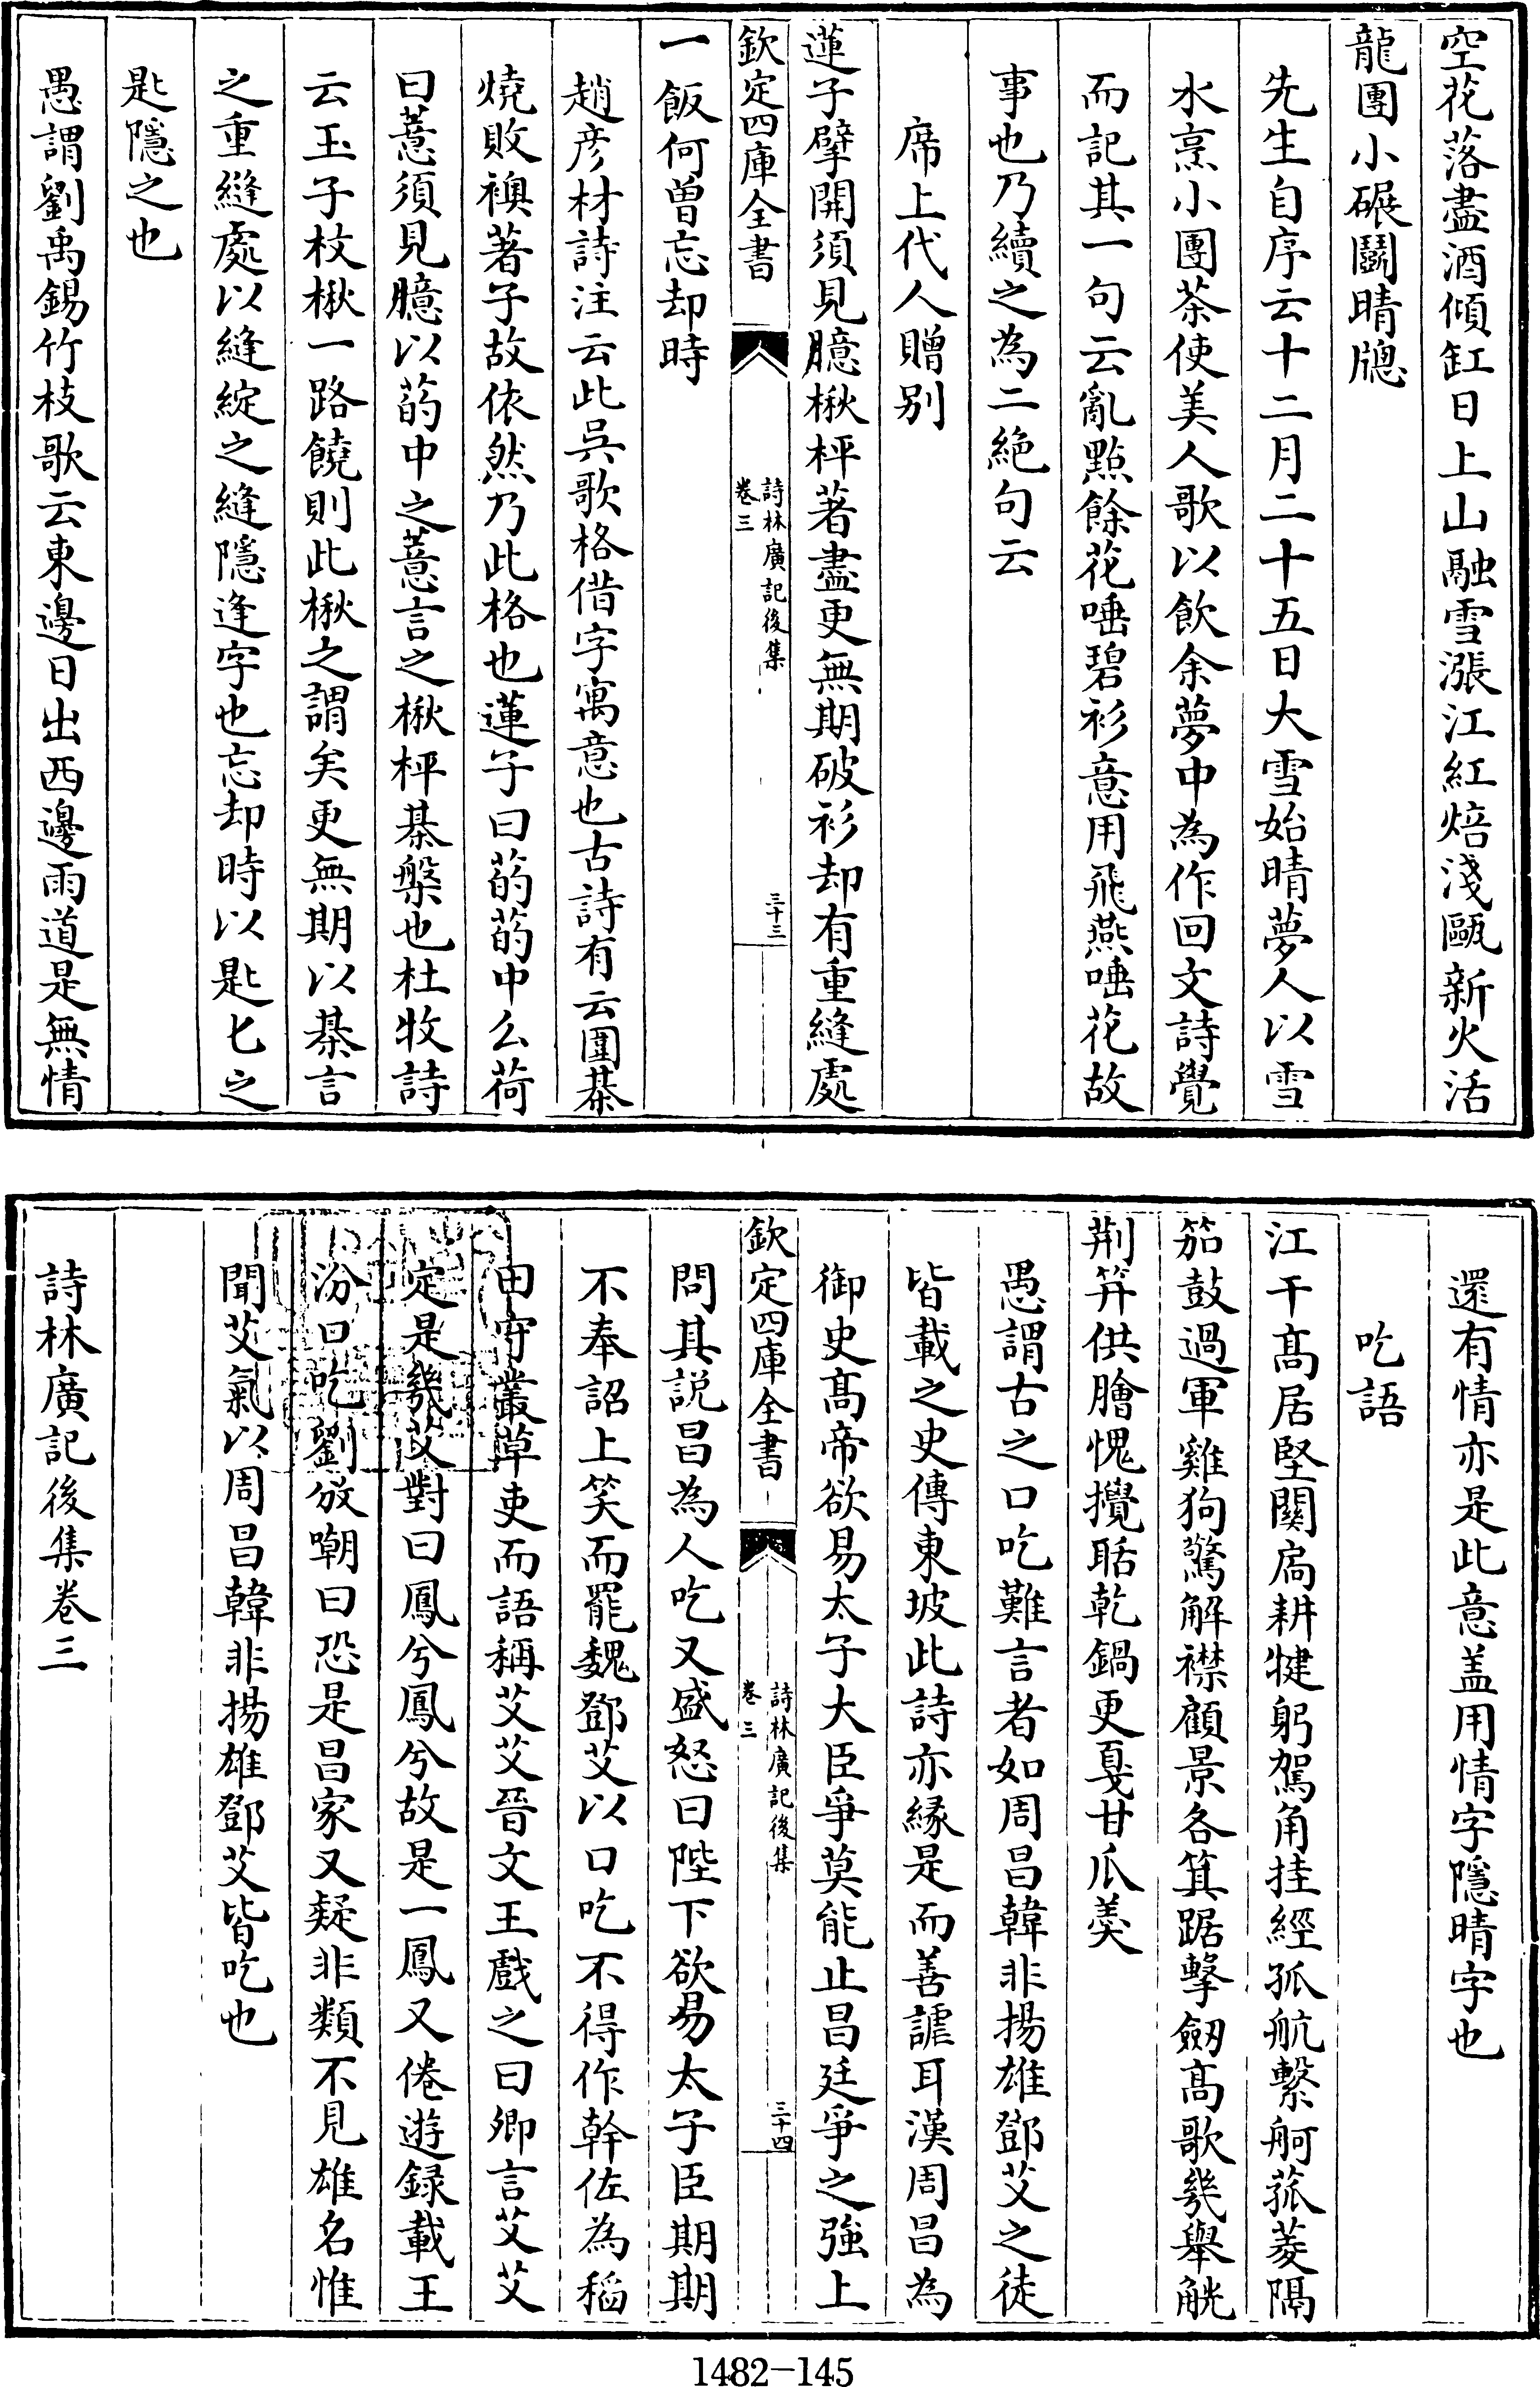 空花落盡酒傾缸日上山融雪漲江紅焙淺甌新火活
龍團小碾鬭晴牕
先生自序云十二月二十五日大雪始晴夢人以雪
水烹小團茶使美人歌以飲余夢中為作回文詩覺
而記其一句云亂㸃餘花唾碧衫意用飛燕唾花故
事也乃續之為二絶句云
席上代人贈别
蓮子擘開須見臆楸枰著盡更無期破衫却有重縫處
欽定四庫全書
詩林廣記後集
卷三
三十三
一飯何曽忘却時
趙彦材詩注云此吳歌格借字寓意也古詩有云圍棊
燒敗襖著子故依然乃此格也蓮子曰菂菂中么荷
曰薏須見臆以菂中之薏言之楸枰棊槃也杜牧詩
云玉子杖楸一路饒則此楸之謂矣更無期以棊言
之重縫處以縫綻之縫隱逢字也忘却時以匙匕之
匙隱之也
愚謂劉禹錫竹枝歌云東邊日出西邊雨道是無情
還有情亦是此意盖用情字隱晴字也
吃語
江干髙居堅闗扃耕犍躬駕角挂經孤航繫舸菰菱隔
笳鼓過軍雞狗驚解襟顧景各箕踞擊劒髙歌幾舉觥
荆笄供膾愧攪聒乾鍋更戛甘瓜羮
愚謂古之口吃難言者如周昌韓非揚雄鄧艾之徒
皆載之史傳東坡此詩亦縁是而善謔耳漢周昌為
御史髙帝欲易太子大臣爭莫能止昌廷爭之強上
欽定四庫全書
詩林廣記後集
卷三
三十四
問其説昌為人吃又盛怒曰陛下欲易太子臣期期
不奉詔上笑而罷魏鄧艾以口吃不得作幹佐為稻
田守叢草吏而語稱艾艾晉文王戲之曰卿言艾艾
定是幾艾對曰鳳兮鳳兮故是一鳳又倦遊録載王
汾口吃劉攽嘲曰恐是昌家又疑非類不見雄名惟
聞艾氣以周昌韓非揚雄鄧艾皆吃也
詩林廣記後集卷三
1482-145